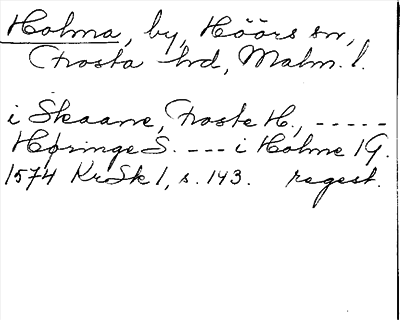 Holma, by, Höörs sn,
Frosta hd, Malm. l.
i Skaane, Froste H., -----
Høringe S. --- i Holme 1 G.
1574 KrSk 1, s. 143. regest.